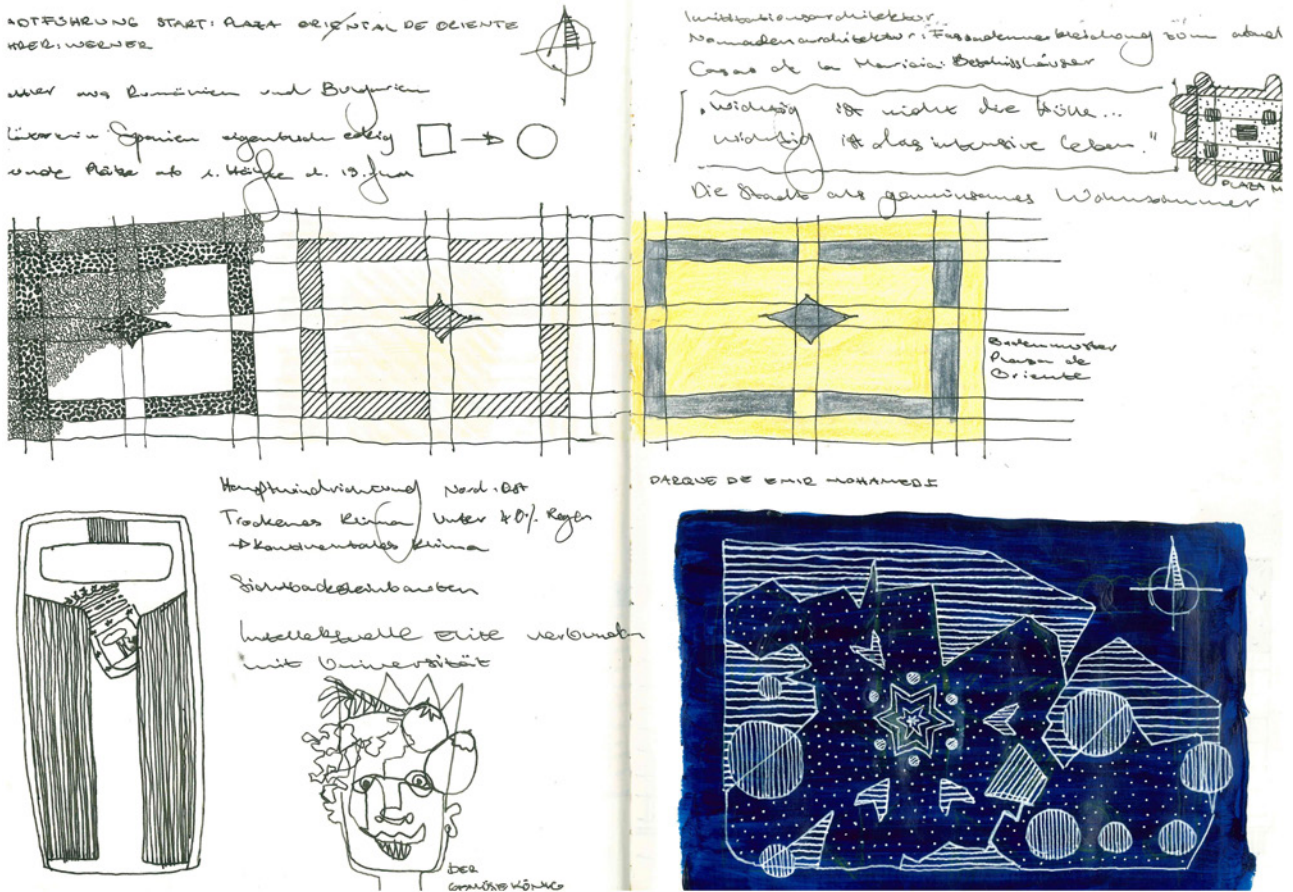 ADTFÜHRUNG START: PLAZA ORIENTAL DE ORIENTE
HRER: WERNER
aus Rumänien und Bulgarien
in Spanien eigentlich eckig
runde Plätze ab 1. Hälfte d. 19. Jhd
Imitationsarchitektur
Nomadenarchitektur: Fassadenverkleidung zum
Casas de la Maricia: Beschisshäuser
"Wichtig ist nicht die Hülle...
Wichtig ist das intensive Leben."
PLAZA M
Die Stadt als gemeinsames Wohnzimmer
Bodenmuster
Plaza de
Oriente
Hauptwindrichtung Nord-Ost
Trockenes Klima Unter 40% Regen
→ Kontinentales Klima
Sichtbacksteinbauten
Intellektuelle Elite verbunden
mit Universität
DER
GEMÜSEKÖNIG
PARQUE DE EMIR MOHAMED I